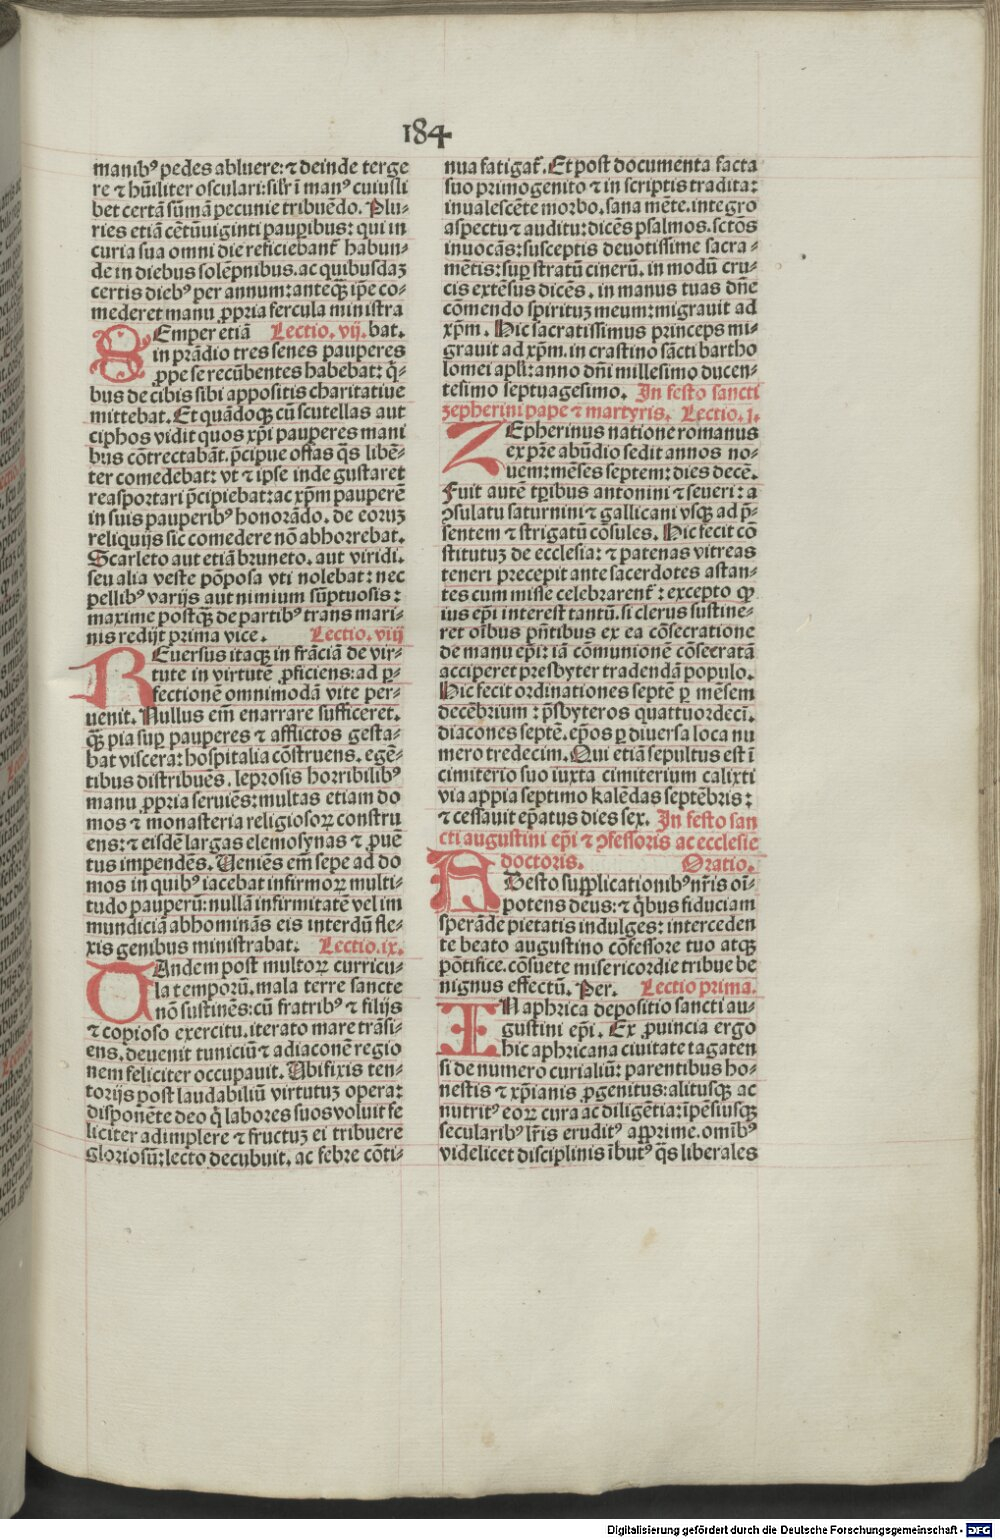 184
manibꝰ pedes abluere: ⁊ deinde terge
re ⁊ hūiliter osculari: silr̄ ī manꝰ cuiusli
bet certā sūmā pecunie tribuēdo. Plu-
ries etiā cētūuiginti pauꝑibus: qui in
curia sua omni die reficiebant᷑ habun-
de in diebus solēpnibus. ac quibusdaꝫ
certis diebꝰ per annum: anteqꝫ̄ ip̄e co-
mederet manu ꝓpria fercula ministra
SEmper etiā Lectio. vij. bat.
in prādio tres senes pauperes
ꝓpe se recūbentes habebat: q̄-
bus de cibis sibi appositis charitatiue
mittebat. Et quādoqꝫ cū scutellas aut
ciphos vidit quos xp̄i pauperes mani
bus cōtrectabāt. p̄cipue offas q̄s libē-
ter comedebat: vt ⁊ ipse inde gustaret
reasportari p̄cipiebat: ac xp̄m pauperē
in suis pauperibꝰ honorādo. de eoruꝫ
reliquijs sic comedere nō abhorrebat.
Scarleto aut etiā bruneto. aut viridi.
seu alia veste pōposa vti nolebat: nec
pellibꝰ varijs aut nimium sūptuosis:
maxime postqꝫ̄ de partibꝰ trans mari-
nis redijt prima vice. Lectio. viij
REuersus itaqꝫ in frāciā de vir-
tute in virtutē ꝓficiens: ad ꝑ-
fectionē omnimodā vite per-
uenit. Nullus em̄ enarrare sufficeret.
qꝫ̄ pia suꝑ pauperes ⁊ afflictos gesta-
bat viscera: hospitalia cōstruens. egē-
tibus distribuēs. leprosis horribilibꝰ
manu ꝓpria seruiēs: multas etiam do
mos ⁊ monasteria religiosoꝝ constru
ens: ⁊ eisdē largas elemosynas ⁊ ꝓuē
tus impendēs. Ueniēs em̄ sepe ad do
mos in quibꝰ iacebat infirmoꝝ multi-
tudo pauperū: nullā infirmitatē vel im
mundiciā abhominās eis interdū fle-
xis genibus ministrabat. Lectio. ix.
TAndem post multoꝝ curricu-
la temporū. mala terre sancte
nō sustinēs: cū fratribꝰ ⁊ filijs
⁊ copioso exercitu. iterato mare trāsi-
ens. deuenit tuniciū ⁊ adiaconē regio
nem feliciter occupauit. Ubi fixis ten-
torijs post laudabiliū virtutuꝫ opera:
disponēte deo q̄ labores suos voluit fe
liciter adimplere ⁊ fructuꝫ ei tribuere
gloriosū: lecto decubuit. ac febre cōti-
nua fatigat᷑. Et post documenta facta
suo primogenito ⁊ in scriptis tradita:
inualescēte morbo. sana mēte. integro
aspectu ⁊ auditu: dicēs psalmos. sctōs
inuocās: susceptis deuotissime sacra-
mētis: suꝑ stratū cinerū. in modū cru-
cis extēsus dicēs. in manus tuas dn̄e
cōmendo spirituꝫ meum: migrauit ad
xp̄m. Hic sacratissimus princeps mi-
grauit ad xp̄m. in crastino sācti bartho
lomei apl̄i: anno dn̄i millesimo ducen-
tesimo septuagesimo. In festo sancti
zepherini pape ⁊ martyris. Lectio. j.
ZEpherinus natione romanus
ex pr̄e abūdio sedit annos no-
uem: mēses septem: dies decē.
Fuit autē tꝑibus antonini ⁊ seueri: a
ꝯsulatu saturnini ⁊ gallicani vsqꝫ ad p̄-
sentem ⁊ strigatū cōsules. Hic fecit cō
stitutuꝫ de ecclesia: ⁊ patenas vitreas
teneri precepit ante sacerdotes astan-
tes cum misse celebrarent᷑: excepto qꝙ
ius ep̄i interest tantū. si clerus sustine-
ret oībus p̄ntibus ex ea cōsecratione
de manu ep̄i: iā cōmunionē cōsecratā
acciperet presbyter tradendā populo.
Hic fecit ordinationes septē ꝑ mēsem
decēbrium: p̄sbyteros quattuordecī.
diacones septē. ep̄os ꝑ diuersa loca nu
mero tredecim. Qui etiā sepultus est ī
cimiterio suo iuxta cimiterium calixti
via appia septimo kalēdas septēbris:
⁊ cessauit ep̄atus dies sex. In festo san
cti augustini ep̄i ⁊ ꝯfessoris ac ecclesie
doctoris. Oratio.
ADesto supplicationibꝰ nr̄is oī-
potens deus: ⁊ q̄bus fiduciam
sperāde pietatis indulges: interceden
te beato augustino cōfessore tuo atqꝫ
pōtifice. cōsuete misericordie tribue be
nignus effectū. Per. Lectio prima.
IN aphrica depositio sancti au-
gustini ep̄i. Ex ꝓuincia ergo
hic aphricana ciuitate tagaten
si de numero curialiū: parentibus ho-
nestis ⁊ xp̄ianis ꝓgenitus: alitusqꝫ ac
nutritꝰ eoꝝ cura ac diligētia: ipēsiusqꝫ
secularibꝰ lr̄is eruditꝰ apprime. omībꝰ
videlicet disciplinis ībutꝰ q̄s liberales
Digitalisierung gefördert durch die Deutsche Forschungsgemeinschaft - DFG